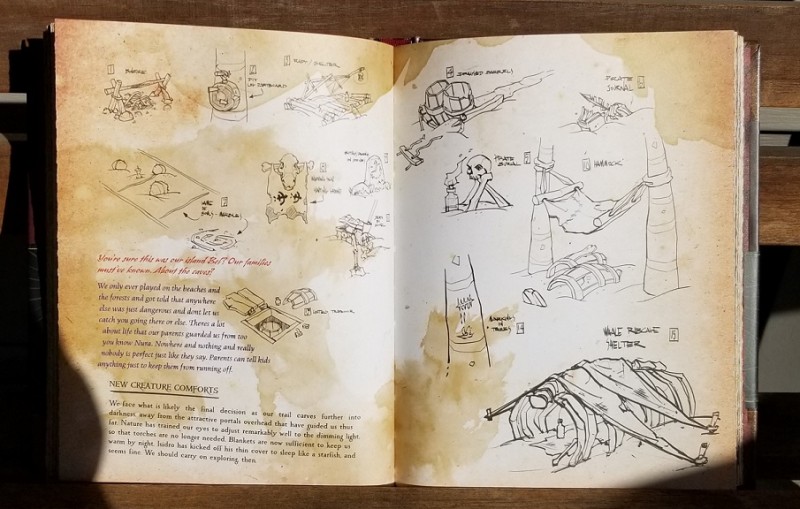 You're sure this was our island Bel? Our families
must've known. About the caves?
We only ever played on the beaches and
the forests and got told that anywhere
else was just dangerous and dont let us
catch you going there or else. Theres a lot
about life that our parents guarded us from too
you know Nura. Nowhere and nothing and really
nobody is perfect just like they say. Parents can tell kids
anything just to keep them from running off.
NEW CREATURE COMFORTS
We face what is likely the final decision as our trail carves further into
darkness away from the attractive portals overhead that have guided us thus
far. Nature has trained our eyes to adjust remarkably well to the dimming light,
so that torches are no longer needed. Blankets are now sufficient to keep us
warm by night. Isidro has kicked off his thin cover to sleep like a starfish, and
seems fine. We should carry on exploring then.
PIRATE
BURIAL
HAMMOCK
MARKINGS
IN
TREES
14
WHALE RIBCAGE
SHELTER